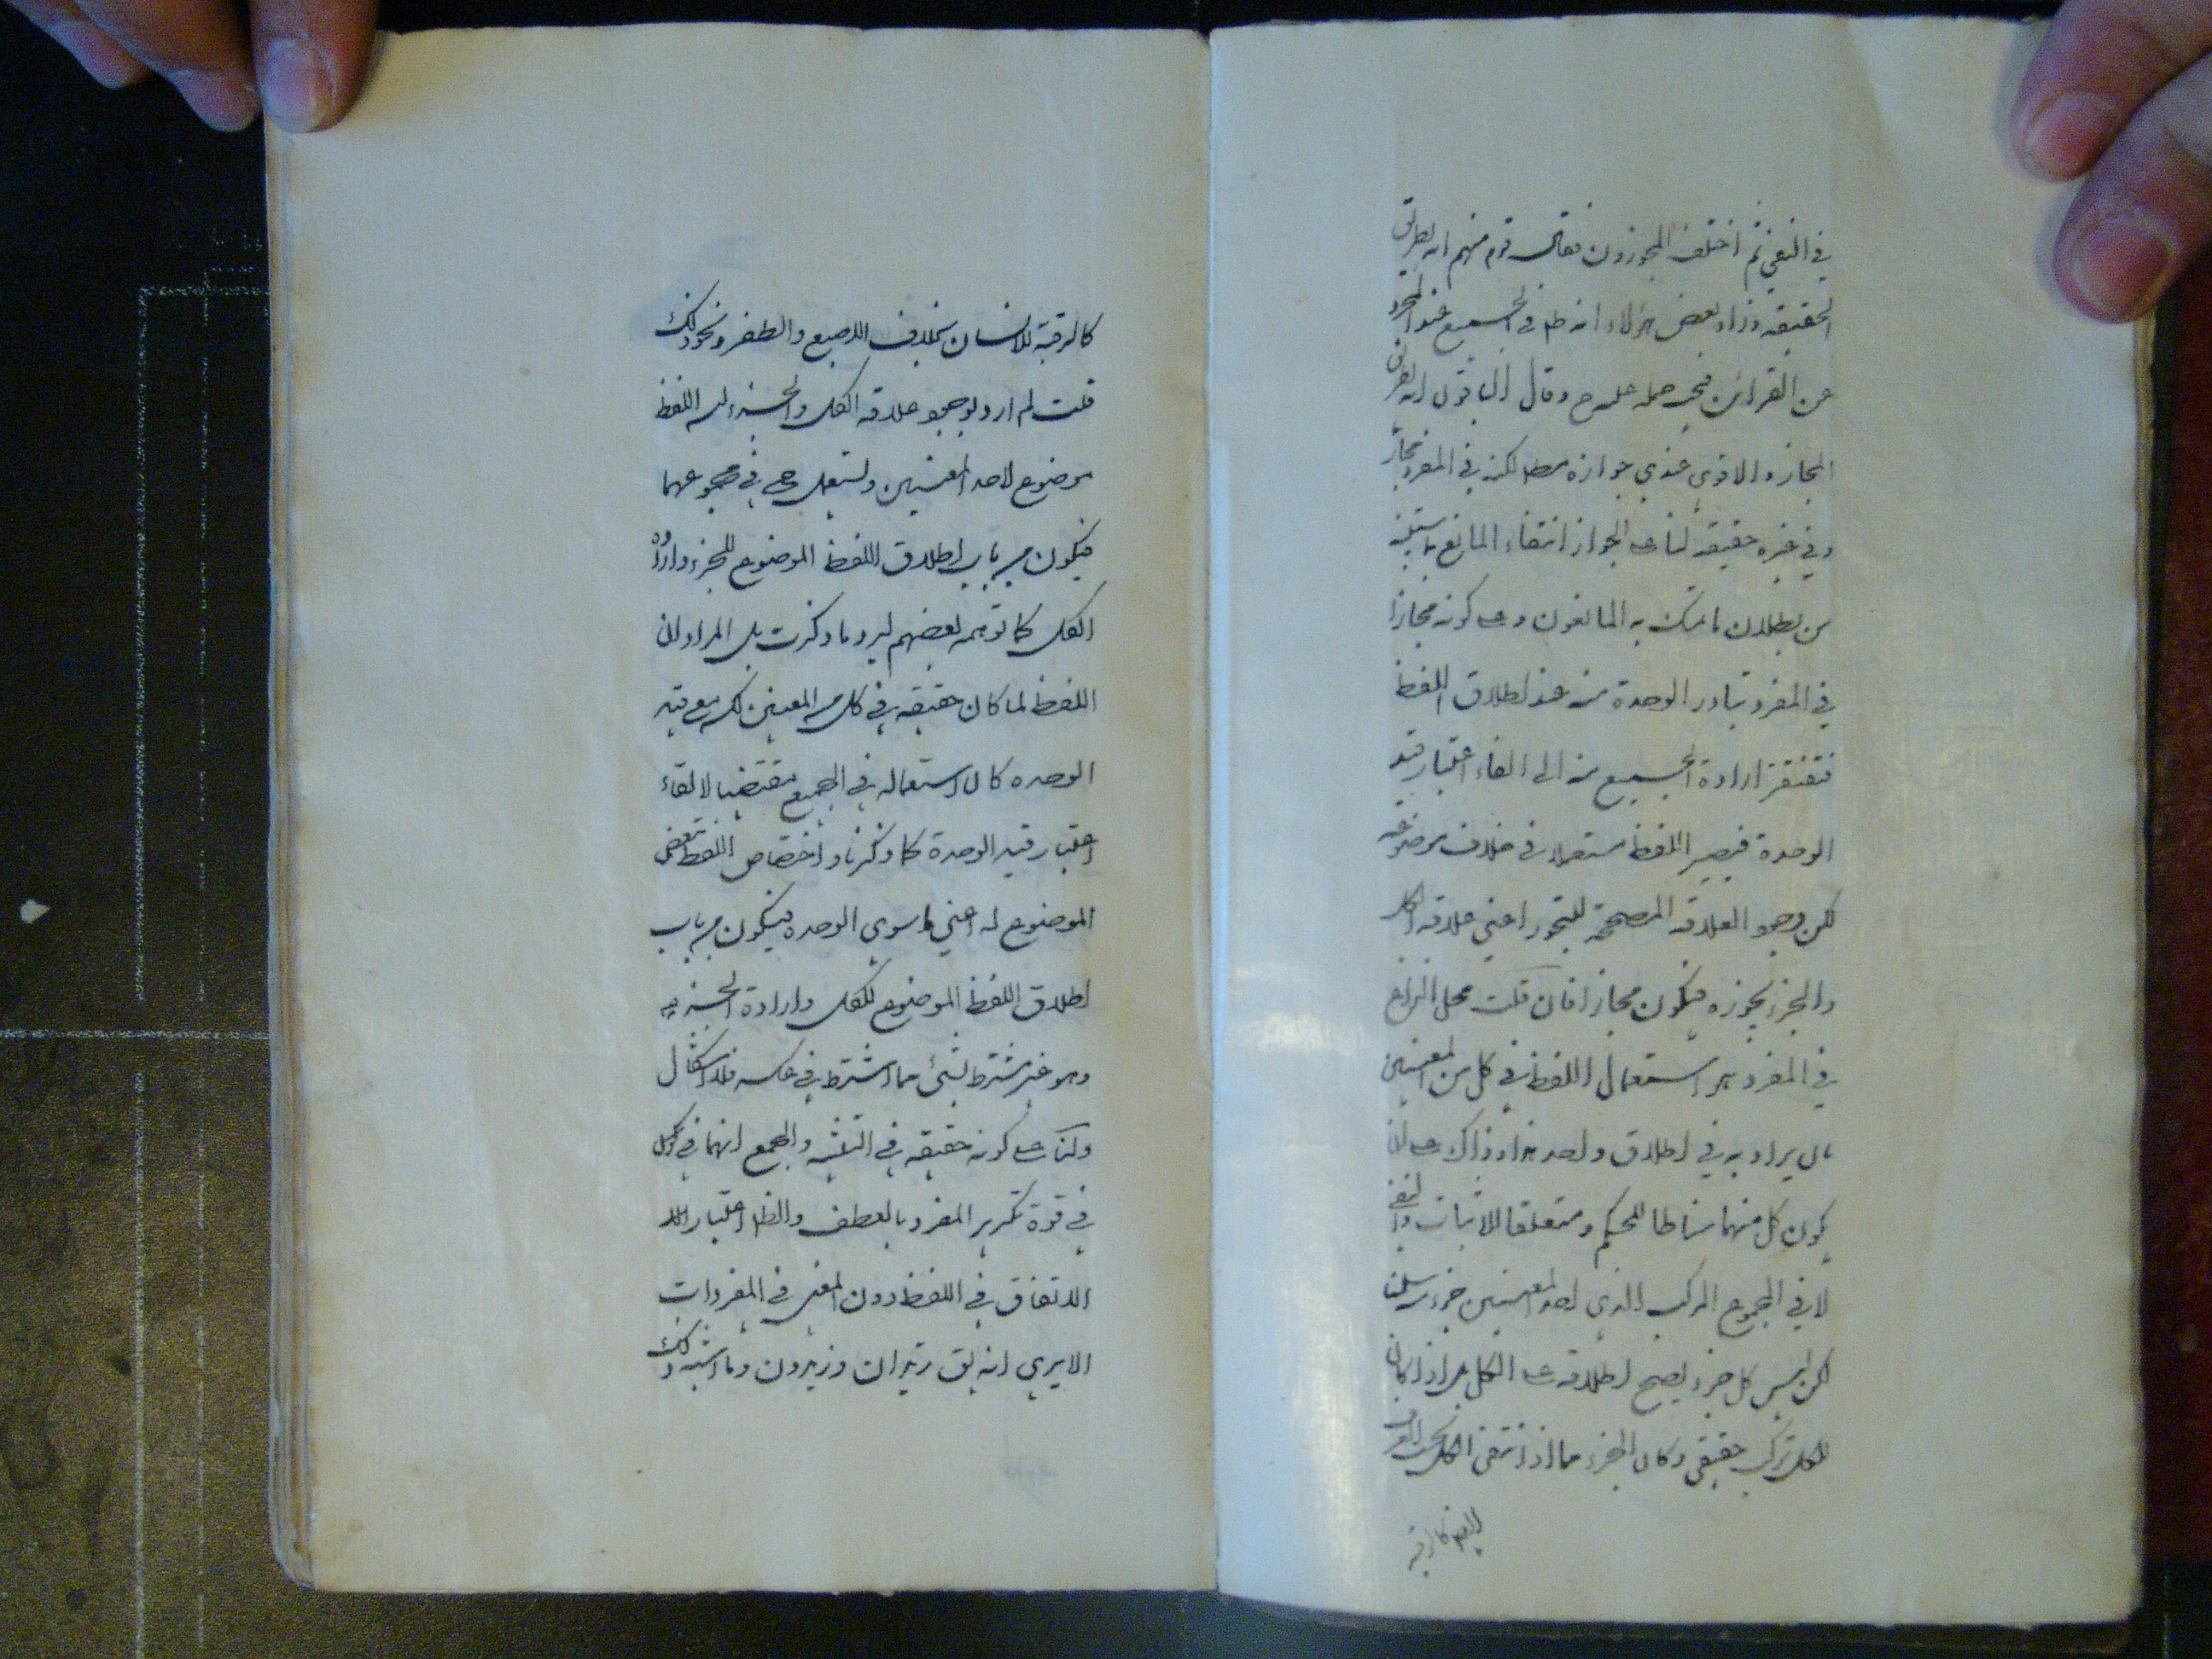 في النفي ثم اختلف المجوزون فقال قوم منهم انه بطريق
الحقيقه وزاد بعض هؤلاء انه ظ في الجميع عند التجرد
عن القرائن فيجب حمله عليه ح وقال الباقون انه بطريق
المجاز والاقوى عندي جوازه مط لكنه في المفرد مجاز
وفي غيره حقيقه لنا على الجواز انتفاء المانع بما سنبينه
من بطلان ما تمسك به المانعون وعلى كونه مجازا
في المفرد تبادر الوحدة منه عند اطلاق اللفظ
فتفتقر ارادة الجميع منه الى الغاء اعتبار قيد
الوحدة فيصير اللفظ مستعملا في خلاف موضوعه
لكن وجود العلاقه المصححة للتجوز اعني علاقه الكل
والجزء يجوزه فيكون مجازا فان قلت محل النزاع
في المفرد هو استعمال اللفظ في كل من المعنيين
بان يراد به في اطلاق واحد هذا وذاك على ان
يكون كل منهما مناطا للحكم ومتعلقا للاثبات والنفي
لا في المجموع المركب الذي احد المعنيين جزء منه سلمنا
لكن ليس كل جزء يصح اطلاقه على الكل بل اذا كان
للكل تركب حقيقي وكان الجزء مما اذا انتفى انتفى الكل بحسب العرف
ايضا كالرقبة
كالرقبة للانسان بخلاف الاصبع والظفر ونحو ذلك
قلت لم ارد بوجود علاقه الكل والجزء ان اللفظ
موضوع لاحد المعنيين ويستعمل ح في مجموعهما
فيكون من باب اطلاق اللفظ الموضوع للجزء وارادة
الكل كما توهمه بعضهم ليرد ما ذكرت بل المراد ان
اللفظ لما كان حقيقه في كل من المعنيين لكن مع قيد
الوحده كان استعماله في الجميع مقتضيا لالغاء
اعتبار قيد الوحدة كما ذكرنا واختصاص اللفظ ببعض
الموضوع له اعني ما سوى الوحده فيكون من باب
اطلاق اللفظ الموضوع للكل وارادة الجزء
وهو غير مشترط بشئ مما اشترط في عكسه فلا اشكال
ولنا على كونه حقيقه في التثنيه والجمع انهما في
في قوة تكرير المفرد بالعطف والظ اعتبار
الاتفاق في اللفظ دون المعنى في المفردات
الا يرى انه يق زيدان وزيدون وما اشبه ذلك